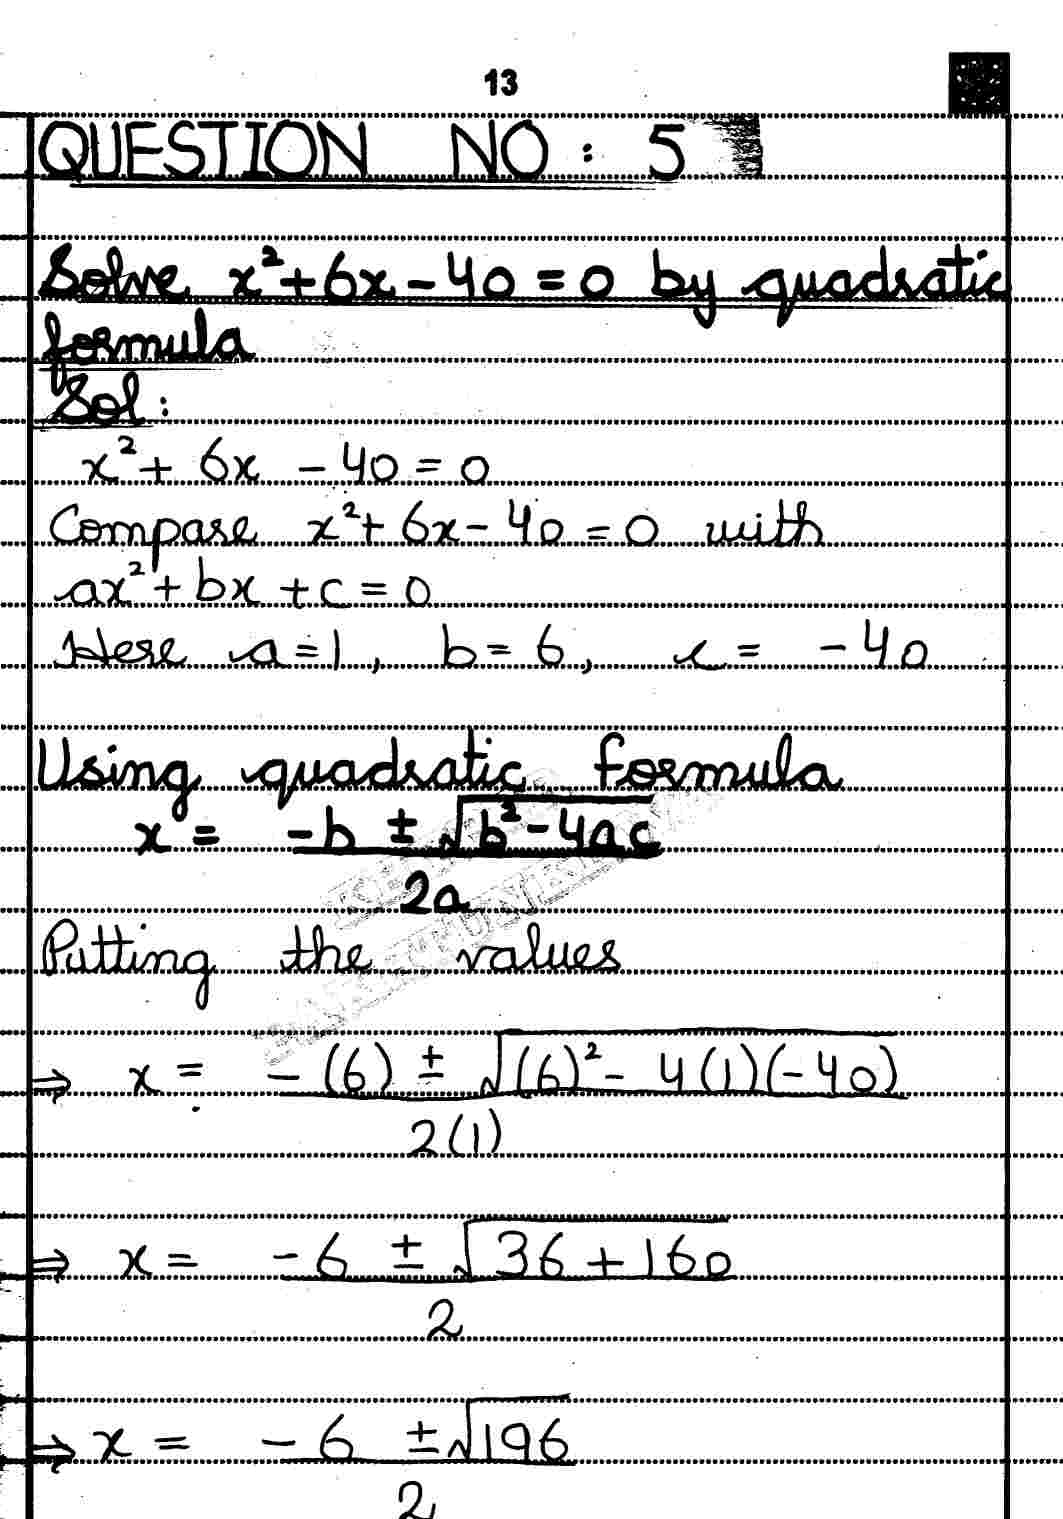 13
QUESTION NO: 5
Solve x²+6x-40=0 by quadratic
formula
Sol:
x² + 6x - 40 = 0
Compare x²+6x-40=0 with
ax²+bx+c=0
Here a=1, b=6, c= -40
Using quadratic formula
x = -b ± √b²-4ac
2a
Putting the values
⇒ x = -(6) ± √(6)²- 4(1)(-40)
2(1)
⇒ x = -6 ± √36+160
2
⇒ x = -6 ± √196
2